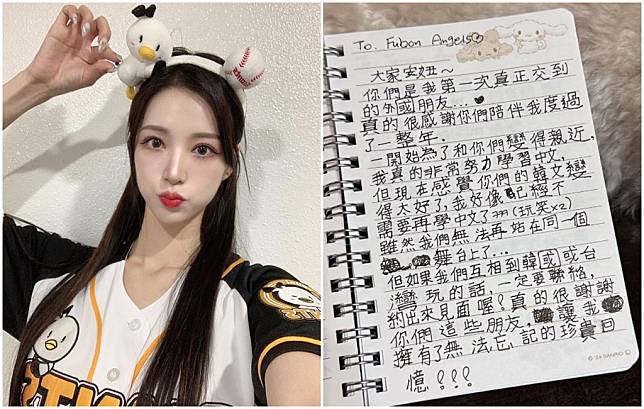 To. Fubon Angels♡
大家安妞~
你們是我第一次真正交到
的外國朋友...♥
真的很感謝你們陪伴我度過
了一整年.
一開始為了和你們變得親近,
我真的非常努力學習中文,
但現在感覺你們的韓文變
得太好了,我好像已經不
需要再學中文了ㅋㅋ(玩笑x2)
雖然我們無法再站在同一個
舞台上了...
但如果我們互相到韓國或台
灣玩的話,一定要聯絡,
約出來見面喔!真的很謝謝
你們這些朋友,讓我
擁有了無法忘記的珍貴回
憶!!!
© '24 SANRIO